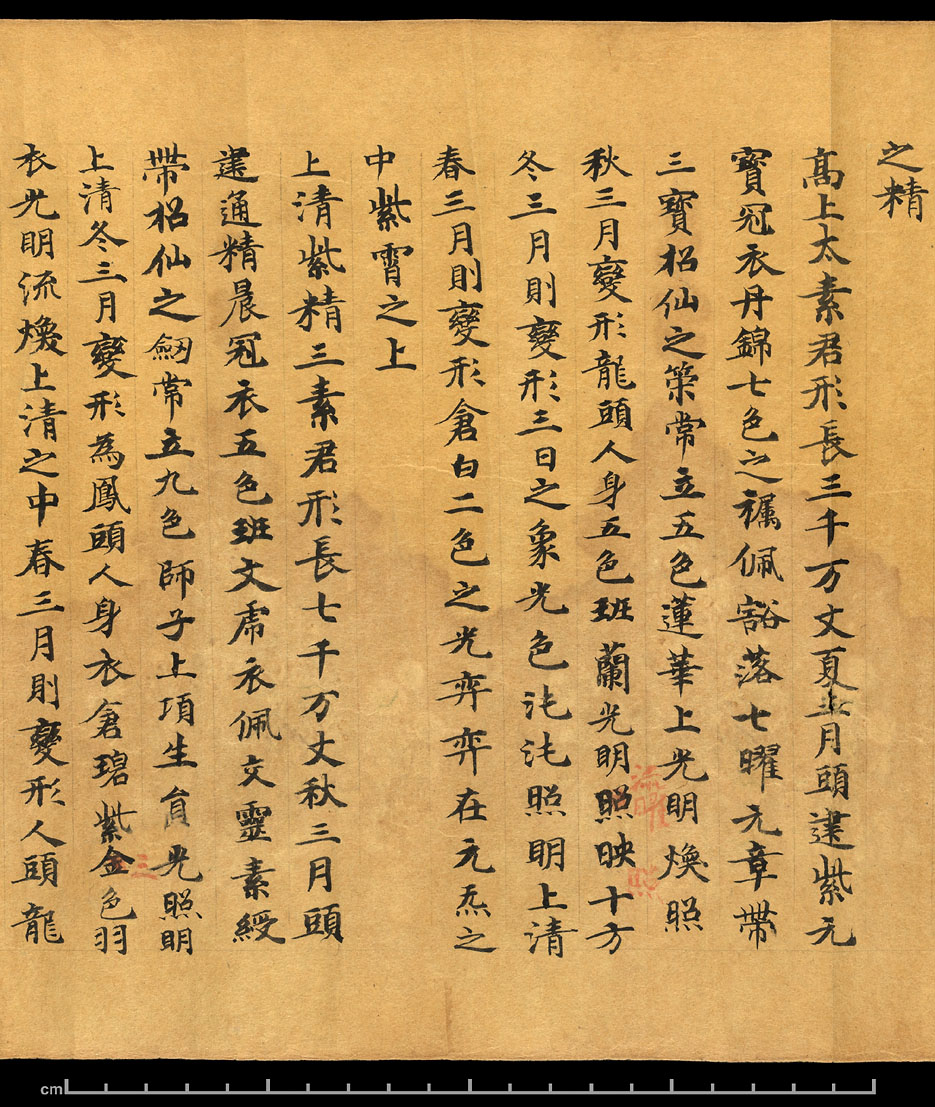 之精
高上太素君形長三千万丈夏三月頭建紫元
寳冠衣丹錦七色之襡佩豁落七曜元章帶
三寳招仙之䇿常立五色蓮華上光明煥照
秋三月變形龍頭人身五色班蘭光明照映十方
冬三月則變形三日之象光色沌沌照明上清
春三月則變形倉白二色之光弈弈在元炁之
中紫霄之上
上清紫精三素君形長七千万丈秋三月頭
建通精晨冠衣五色班文虎衣佩交靈素綬
帶招仙之劒常立九色師子上項生負光照明
上清冬三月變形為鳳頭人身衣倉碧紫金色羽
衣光明流煥上清之中春三月則變形人頭龍
cm